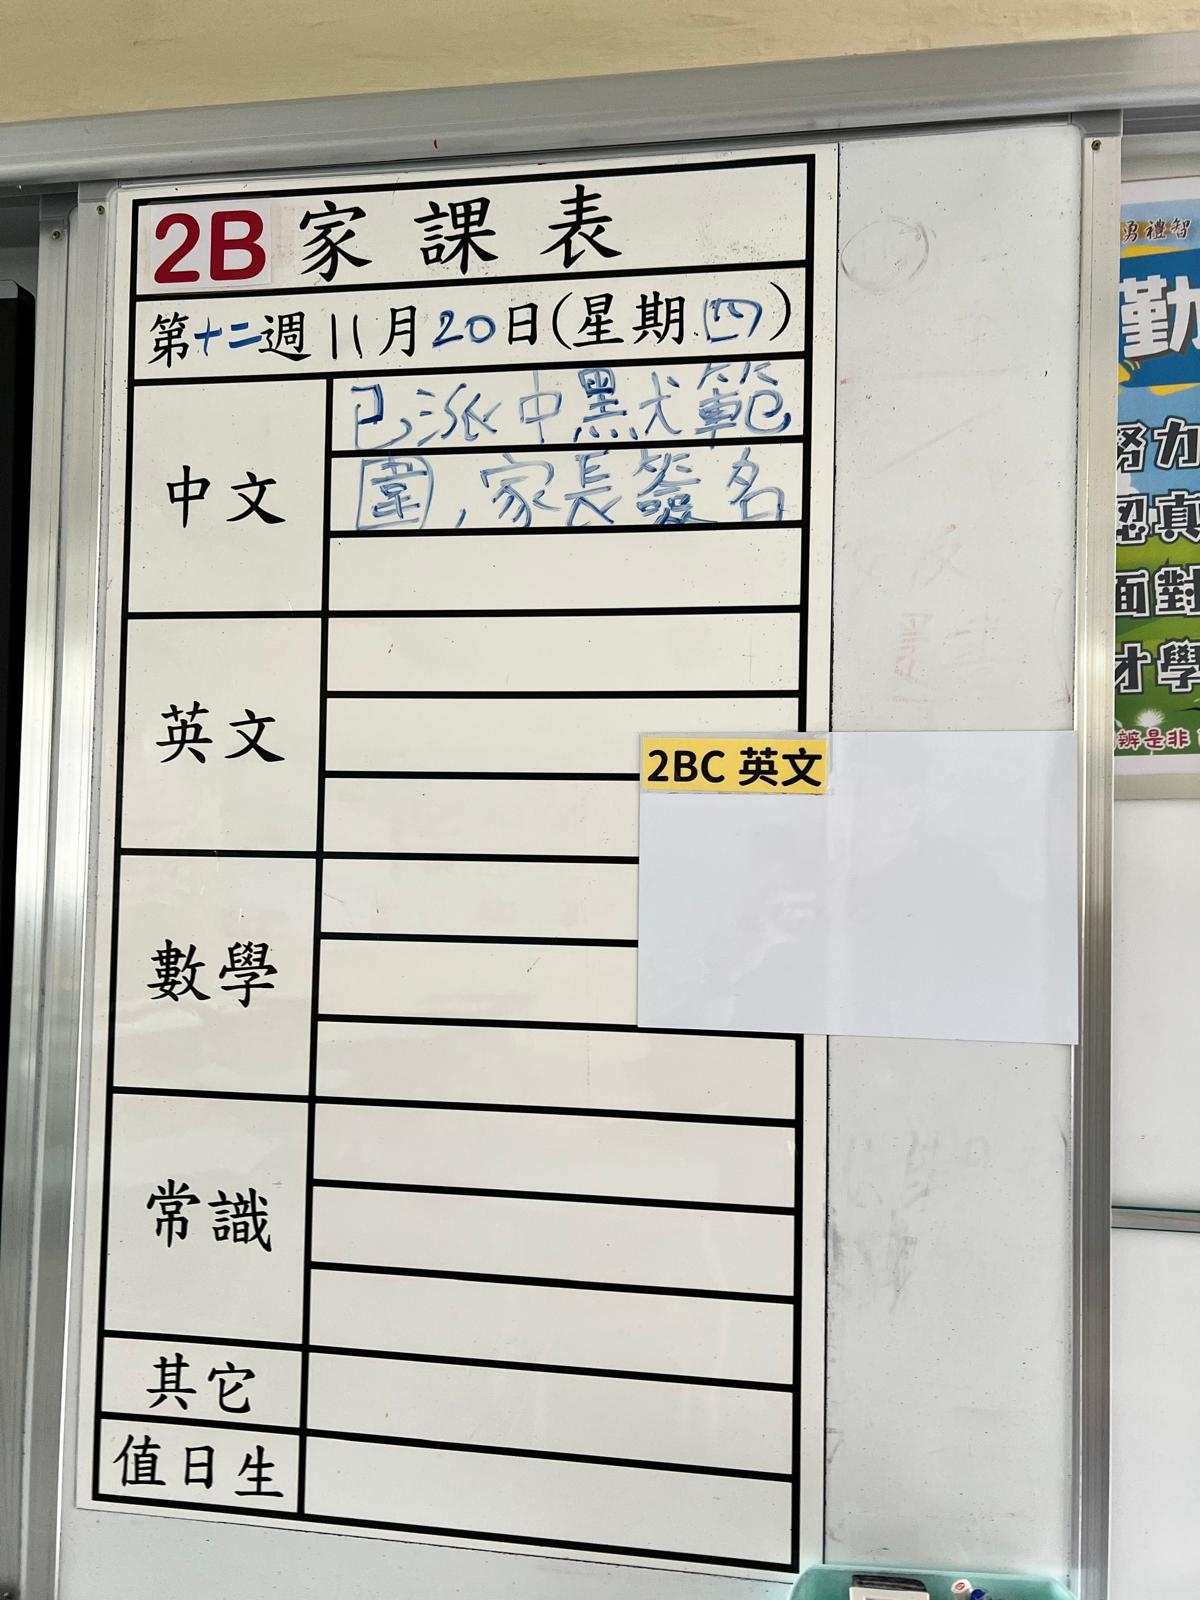 2B 家課表
第十二週 11月20日(星期四)
中文
已派中默犬範
圍,家長簽名
英文
2BC 英文
數學
常識
其它
值日生
勇禮智
勤
努力
認真
面對
才學
辨是非